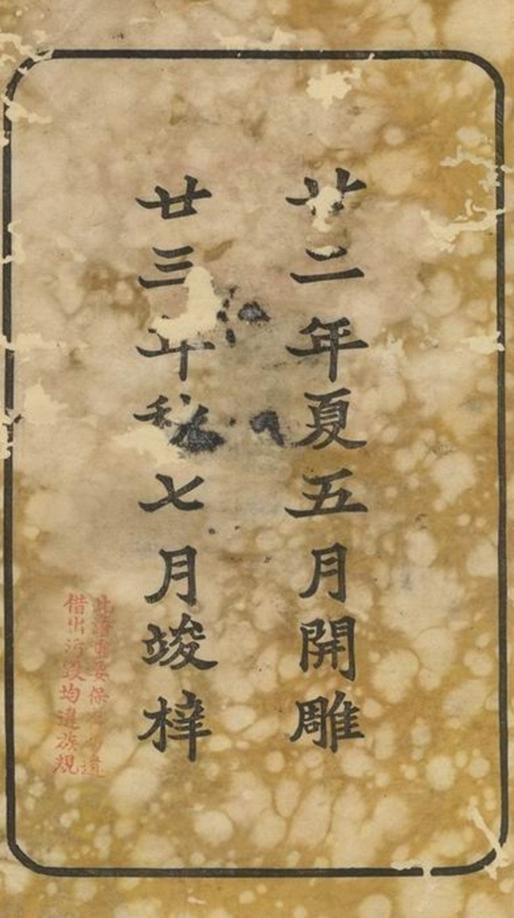 廿二年夏五月開雕
廿三年秋七月竣梓
此譜重要保存勿遺
借出污毀均違族規